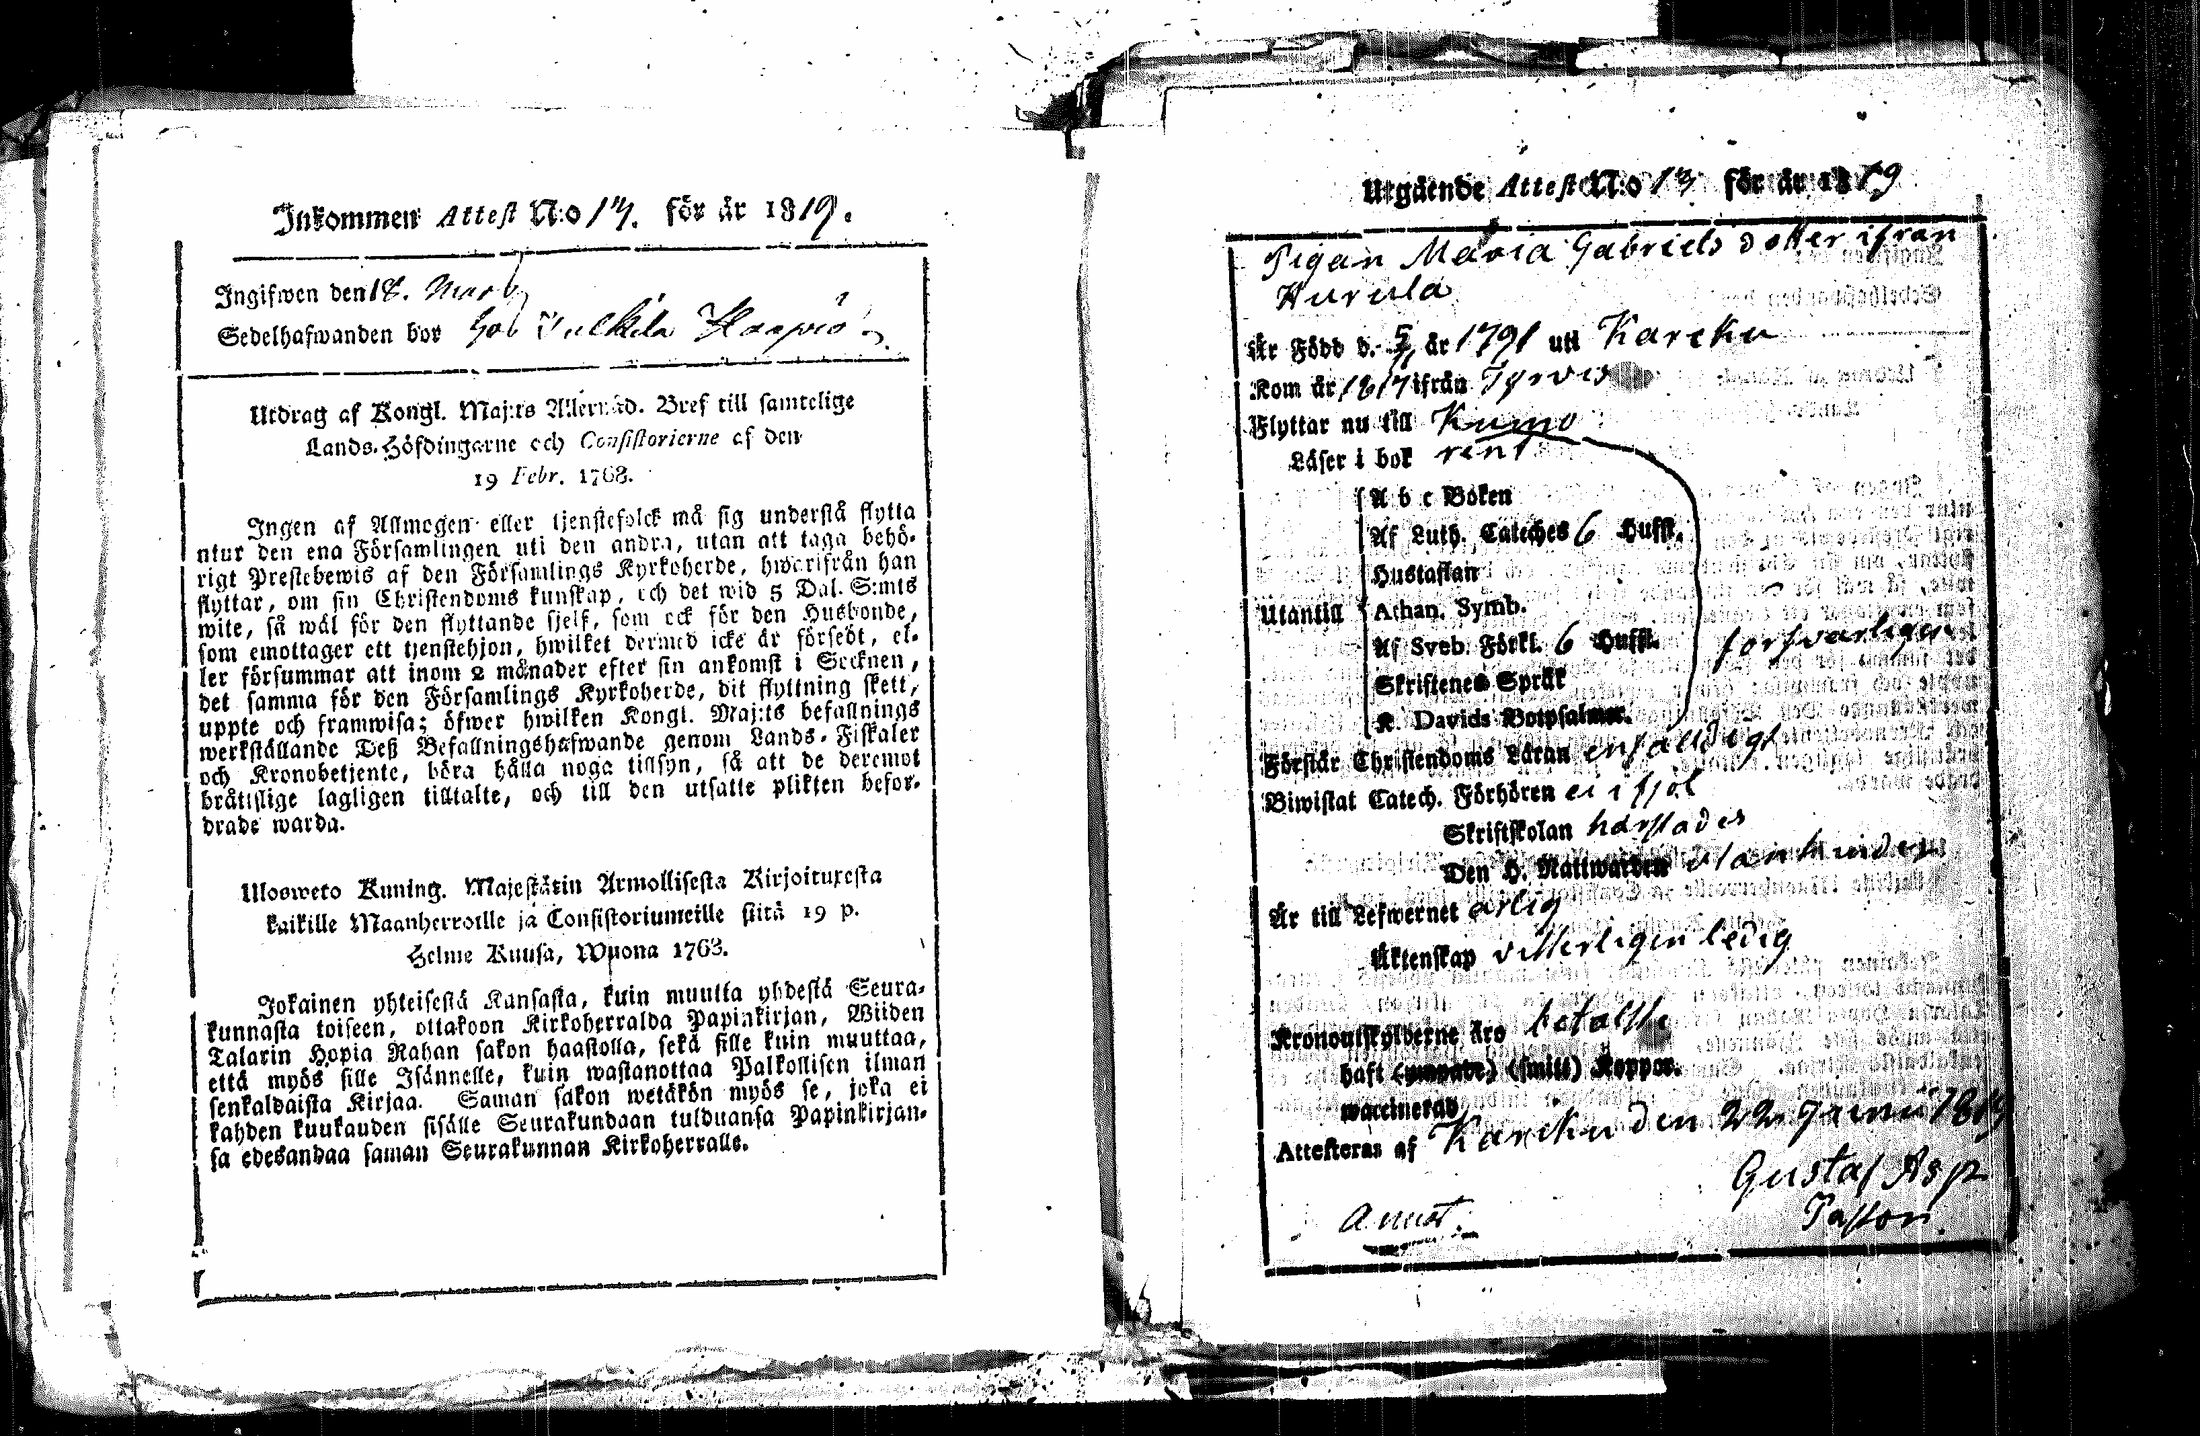 Inkommen Attest N:o 17. för år 1819.
Ingifwen den 18. Martz
Sedelhafwanden bor hos
Utdrag af Kongl. Maj:ts Allernåd. Bref till samtelige
Lands-Höfdingarne och Consistorierne af den
19 Febr. 1768.
Ingen af Allmogen eller tjenstefolck må sig understå flytta
utur den ena Församlingen uti den andra, utan att taga behö-
rigt Prestebewis af den Församlings Kyrkoherde, hwarifrån han
flyttar, om sin Christendoms kunskap, och det wid 5 Dal. S:mts
wite, så wäl för den flyttande sjelf, som ock för den Husbonde,
som emottager ett tjenstehjon, hwilket dermed icke är försedt, el-
ler försummar att inom 2 månader efter sin ankomst i Socknen,
det samma för den Församlings Kyrkoherde, dit flyttning skett,
uppte och framwisa; öfwer hwilken Kongl. Maj:ts befallnings
werkställande Deß Befallningshafwande genom Lands-Fiskaler
och Kronobetjente, böra hålla noga tillsyn, så att de deremot
bråttslige lagligen tilltalte, och till den utsatte plikten befor-
drade warda.
Ulosweto Kuning. Majestätin Armollisesta Kirjoituxesta
kaikille Maanherroille ja Consistoriumeille siitä 19 p.
Helme Kuusa, Wuona 1763.
Jokainen yhteisestä Kansasta, kuin muutta yhdestä Seura-
kunnasta toiseen, ottakoon Kirkoherralda Papinkirjan, Wiiden
Talarin Hopia Rahan sakon haastolla, sekä sille kuin muuttaa,
että myös sille Isännelle, kuin wastanottaa Palkollisen ilman
senkaldaista Kirjaa. Saman sakon wetäkön myös se, joka ei
kahden kuukauden sisälle Seurakundaan tulduansa Papinkirjan-
sa edesandaa saman Seurakunnan Kirkoherralle.
Utgående Attest N:o 13 för år 1819
Pigan Maria Gabriels dotter ifrån
Kurula
Är Född d. 5/11 år 1791 uti Karcku
Kom år 1817 ifrån Tyrvis
Flyttar nu till Kumo
Läser i bok rent
A b c Boken
Af Luth. Cateches 6 Hufst.
Hustaflan
Utantill Athan. Symb.
Af Sveb. Förkl. 6 Hufst. försvarligen
Skriftenes Språk
K. Davids Botpsalmer.
Förstår Christendoms Läran enfalldigt
Biwistat Catech. Förhören ei i fjol
Skriftskolan härstädes
Den H. Nattwarden utan hinder
Är till Lefwernet ärlig
Äktenskap vitterligen ledig
Kronoutskylderne äro betalste
haft (ympade) (smitt) Koppor.
waccinerad
Attesteras af Karcku den 22 Januii 1819
Gustaf Asp
Pastor.